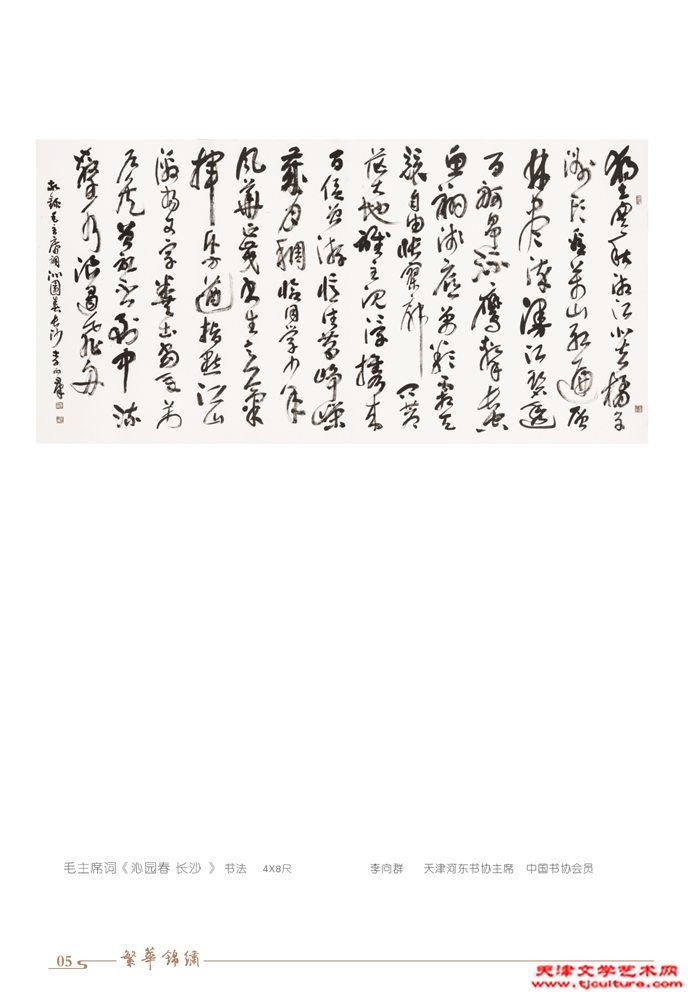 独立寒秋湘江北去橘子
洲头看万山红遍层
林尽染漫江碧透
百舸争流鹰击长空
鱼翔浅底万类霜天
竞自由怅寥廓问苍
茫大地谁主沉浮携来
百侣曾游忆往昔峥嵘
岁月稠恰同学少年
风华正茂书生意气
挥斥方遒指点江山
激扬文字粪土当年万
户侯曾记否到中流
击水浪遏飞舟
敬录毛主席词沁园春长沙 李向群
毛主席词《沁园春 长沙 》 书法 4X8尺 李向群 天津河东书协主席 中国书协会员
05 繁華錦繡
天津文学艺术网
www.tjculture.com